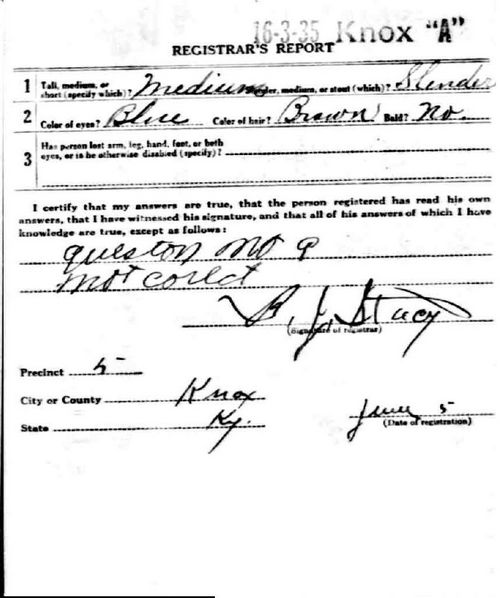 16-3-35 Knox "A"
REGISTRAR'S REPORT
1 Tall, medium, or short (specify which)? Medium Slender, medium, or stout (which)? Slender
2 Color of eyes? Blue Color of hair? Brown Bald? No.
3 Has person lost arm, leg, hand, foot, or both eyes, or is he otherwise disabled (specify)?
I certify that my answers are true, that the person registered has read his own
answers, that I have witnessed his signature, and that all of his answers of which I have
knowledge are true, except as follows:
queston no 9
not corect
B. J. Stacy
(Signature of registrar)
Precinct 5
City or County Knox
State Ky.
June 5
(Date of registration)